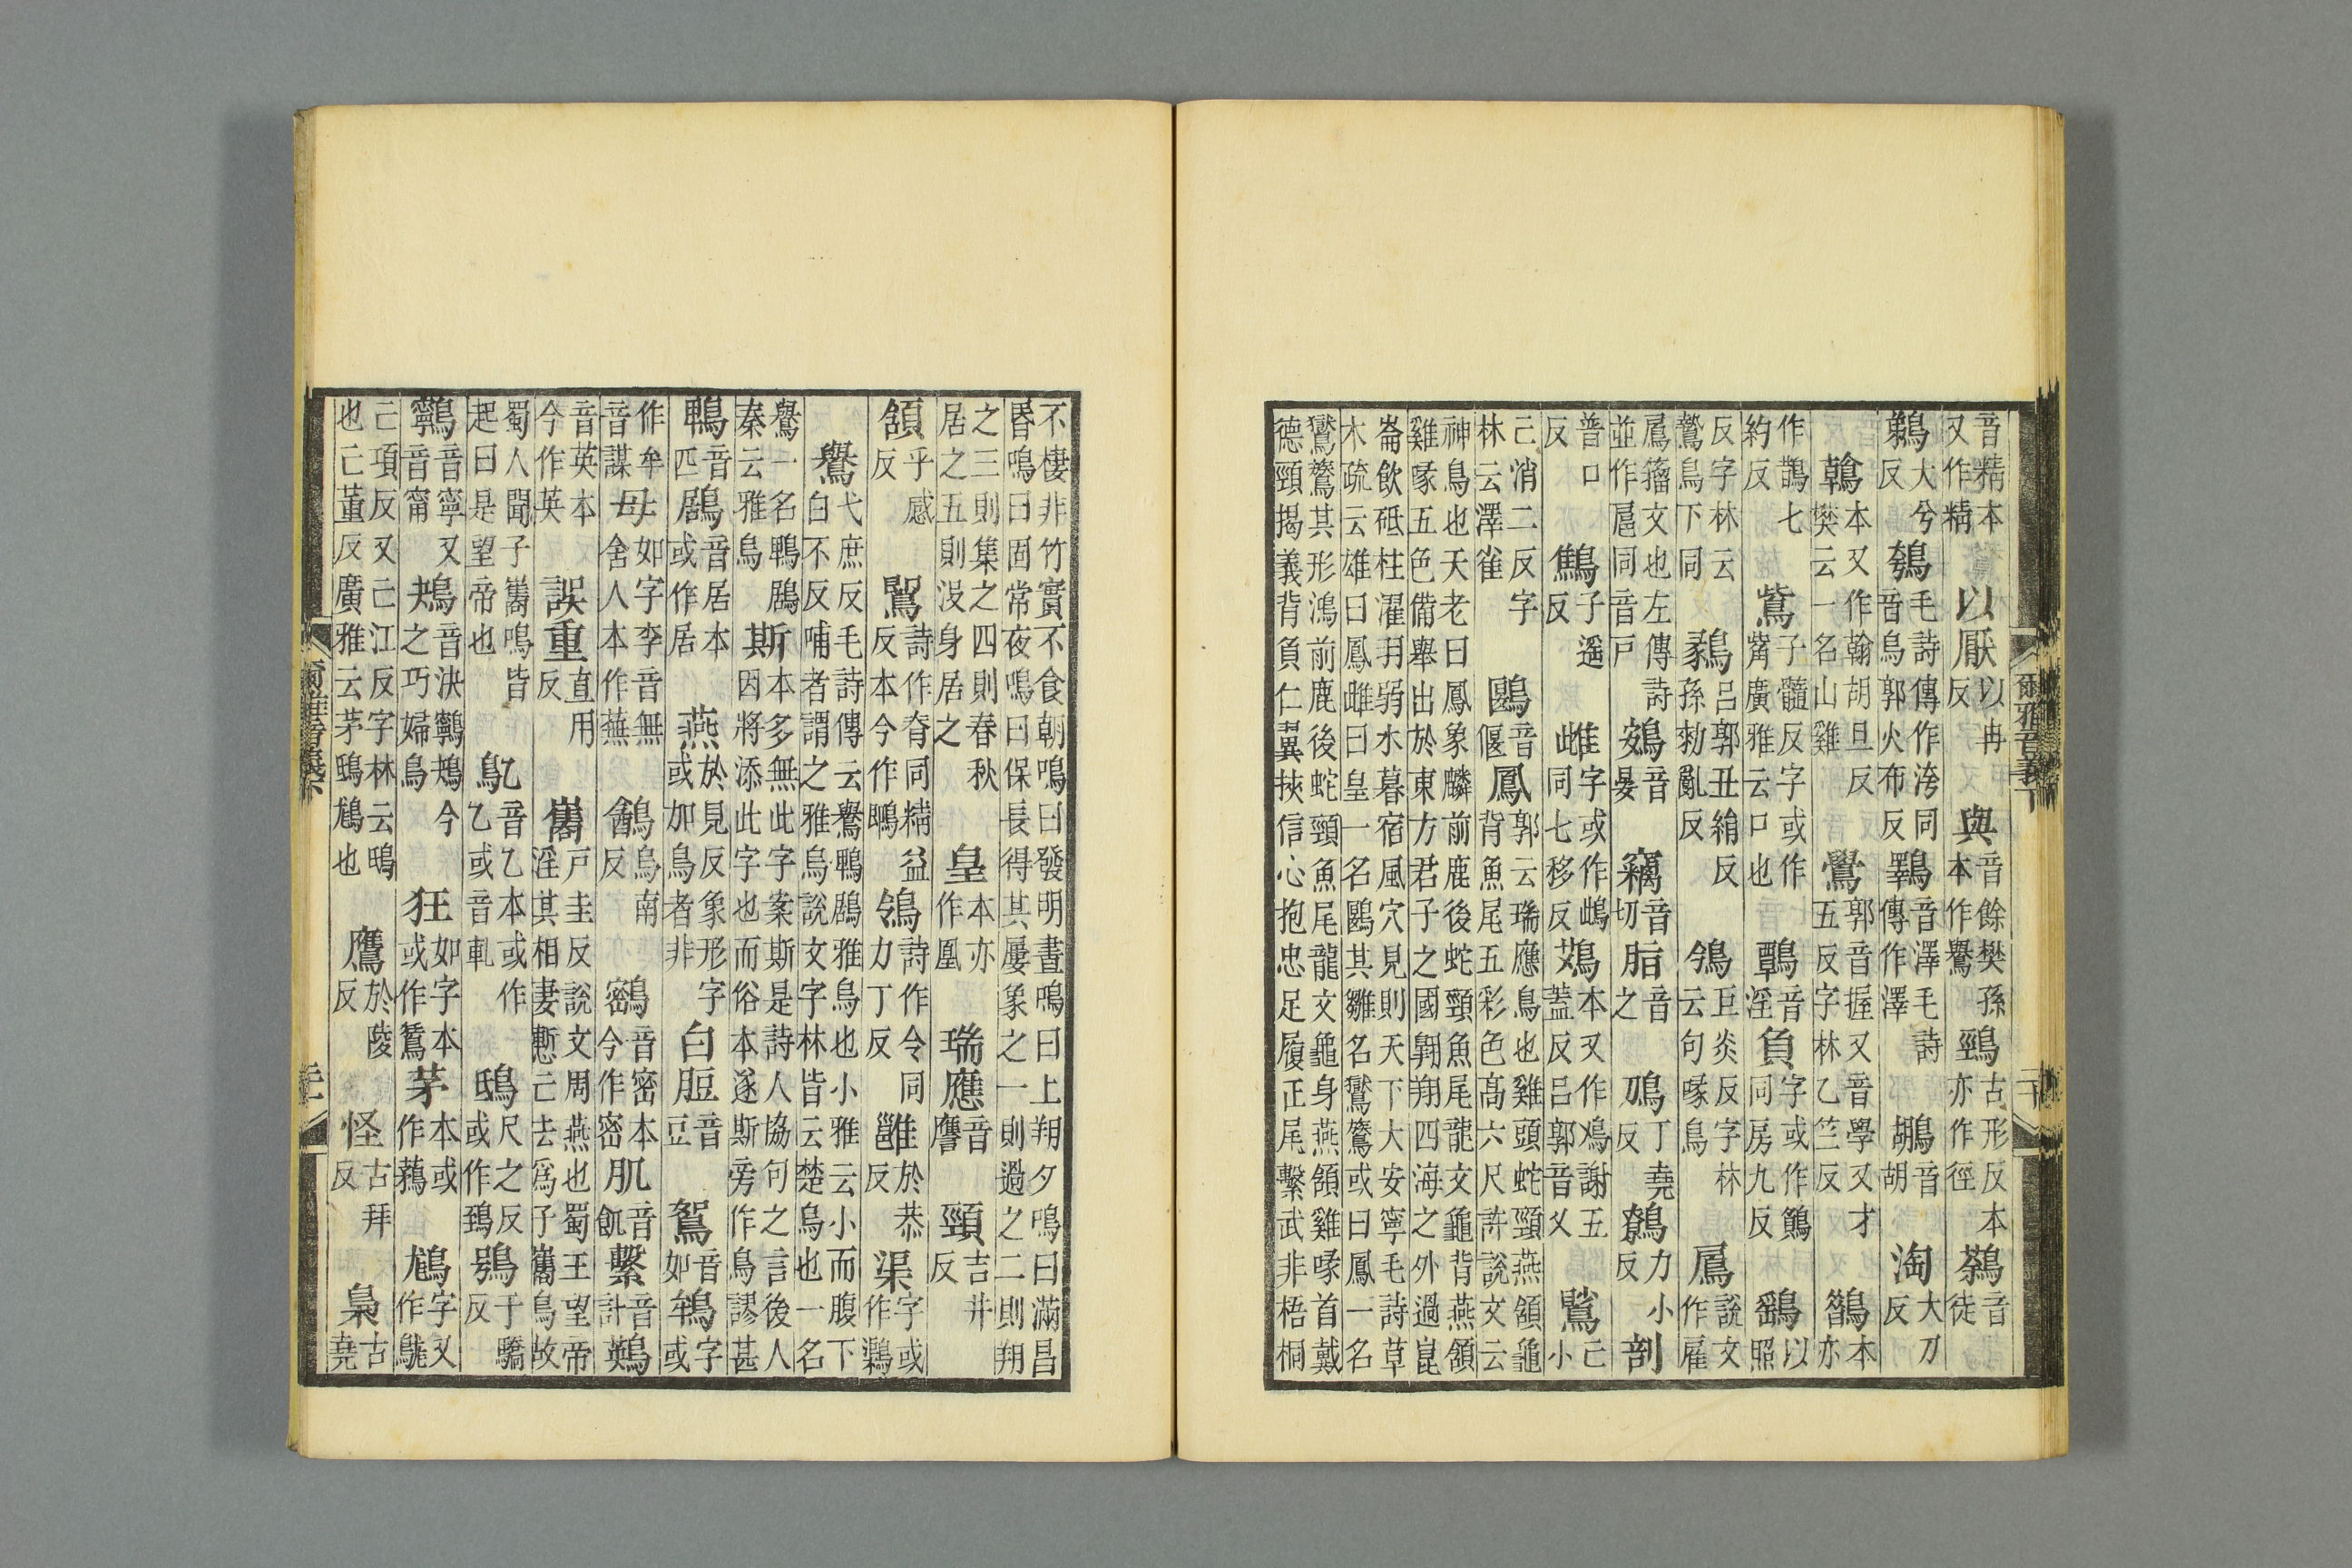 音精本又作精以厭以冉反與音餘樊孫本作鸒鵛古形反本亦作徑鷋音徒
鵜大兮反鴮毛詩傳作洿同音烏郭火布反鸅音澤毛詩傳作澤鶘音胡淘大刀反
鶾本又作翰胡旦反樊云一名山雞鷽郭音握又音學又才五反字林乙竺反本亦
作鵲七約反鴜子髓反字或作觜廣雅云口也鷣音淫負字或作鴍同房九反鷂以照
反字林云鷙鳥下同鶨呂郭丑絹反孫勑亂反鳹巨炎反字林云句喙鳥鳸說文作雇
鳸籀文也左傳詩並作扈同音戶鴳音晏竊音切脂音之鳭丁堯反鷯力小反剖
普口反鷦子遥反雌字或作䳄同七移反鴱本又作謝五蓋反呂郭音乂己小
己消二反字林云澤雀鶠音偃鳳郭云瑞應鳥也雞頭蛇頸燕頷龜背魚尾五彩色高六尺許說文云
神鳥也天老曰鳳象麟前鹿後蛇頸魚尾龍文龜背燕頷雞喙五色備舉出於東方君子之國翱翔四海之外過崑
崙飲砥柱濯羽弱水暮宿風穴見則天下大安寧毛詩草木疏云雄曰鳳雌曰皇一名鶠其雛名鸑鷟或曰鳳一名
鸑鷟其形鴻前鹿後蛇頸魚尾龍文龜身燕頷雞喙首戴德頸揭義背負仁翼挾信心抱忠足履正尾繫武非梧桐
爾雅音義下
二十
不棲非竹實不食朝鳴曰發明晝鳴曰上翔夕鳴曰滿昌昬鳴曰固常夜鳴曰保長得其屢象之一則過之二則翔
之三則集之四則春秋居之五則沒身居之皇本亦作凰瑞應音譍頸吉井反
頷乎感反鴖詩作脊同精益反本今作鶺鴒詩作令同力丁反雝於恭反渠字或作鸈
鸒弋庶反毛詩傳云鸒鵯鶋雅烏也小雅云小而腹下白不反哺者謂之雅烏說文字林皆云楚烏也一名
鸒一名鵯鶋秦云雅烏斯本多無此字案斯是詩人協句之言後人因將添此字也而俗本遂斯旁作鳥謬甚
鵯音匹鶋音居本或作居燕於見反象形字或加鳥者非白脰音豆鴽音如鴾字或
作牟音謀母如字李音無舍人本作蕪鵪烏南反鷎音密本今作密肌音飢繫音計鶧
音英本今作英誤重直用反巂戶圭反說文周燕也蜀王望帝淫其相妻慙亡去爲子巂鳥故
蜀人聞子巂鳴皆起曰是望帝也鳦音乙本或作乙或音軋鴟尺之反或作鵄鴞于驕反
鸋音寧又音甯鴂音決鸋鴂今之巧婦鳥狂如字本或作鵟茅本或作鶜鴟字又作鴟
亡項反又亡江反字林云鴟也亡董反廣雅云茅鴟鵂也鷹於陵反怪古拜反梟古堯
爾雅音義下
二十一